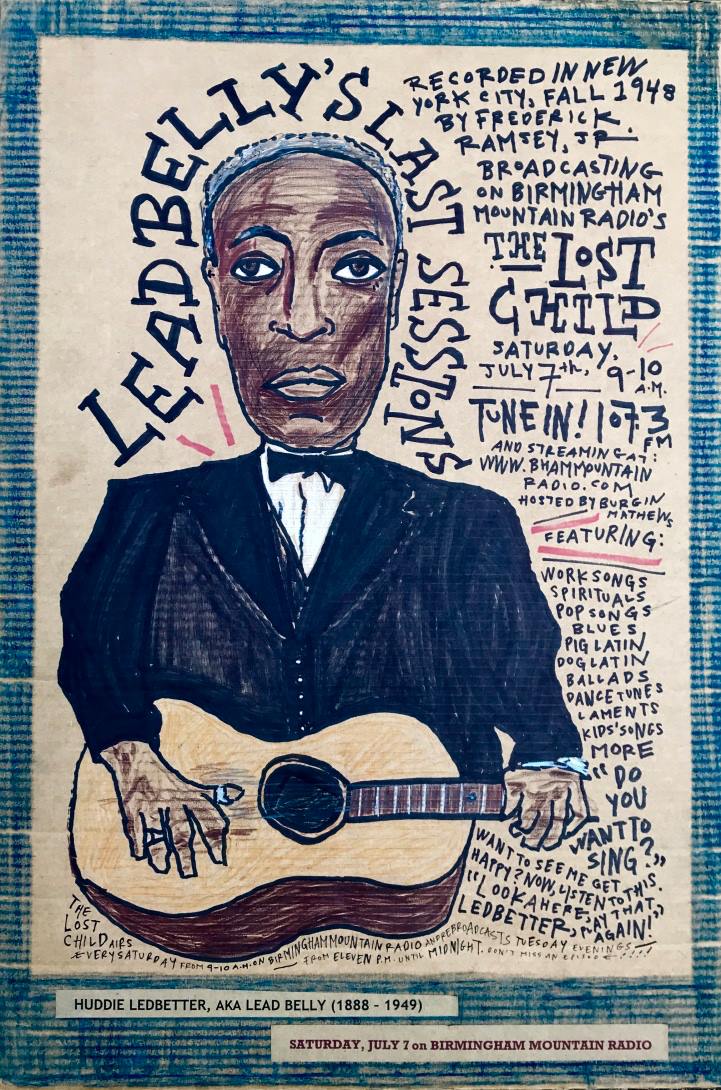 LEAD BELLY'S LAST SESSIONS
RECORDED IN NEW
YORK CITY, FALL 1948
BY FREDERICK
RAMSEY, JR.
BROADCASTING
ON BIRMINGHAM
MOUNTAIN RADIO'S
THE LOST
CHILD
SATURDAY,
JULY 7th, 9-10
A.M.
TUNE IN! 107.3
FM
AND STREAMING AT:
WWW.BHAMMOUNTAIN
RADIO.COM
HOSTED BY BURGIN
MATHEWS
FEATURING:
WORKSONGS
SPIRITUALS
POP SONGS
BLUES
PIG LATIN
DOG LATIN
BALLADS
DANCE TUNES
LAMENTS
KIDS' SONGS
MORE
"DO
YOU
WANT TO
SING?"
WANT TO SEE ME GET
HAPPY? NOW, LISTEN TO THIS.
"LOOKAHERE, SAY THAT
LEDBETTER, AGAIN!"
THE
LOST
CHILD AIRS
EVERY SATURDAY FROM 9-10 A.M. ON BIRMINGHAM MOUNTAIN RADIO AND REBROADCASTS TUESDAY EVENINGS
FROM ELEVEN P.M. UNTIL MIDNIGHT. DON'T MISS AN EPISODE!!!!!
HUDDIE LEDBETTER, AKA LEAD BELLY (1888 - 1949)
SATURDAY, JULY 7 on BIRMINGHAM MOUNTAIN RADIO